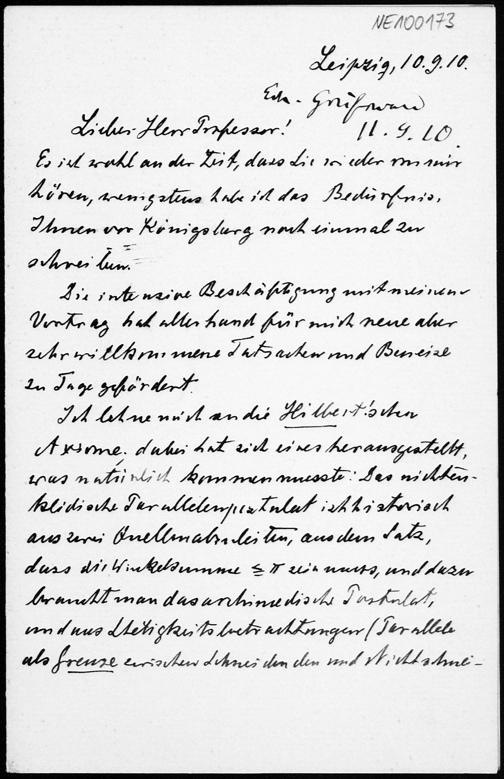 NE100173
Leipzig, 10.9.10.
Greifswald
11.9.10.
Lieber Herr Professor!
Es ist wohl an der Zeit, dass Sie wieder von mir
hören, wenigstens habe ich das Bedürfnis,
Ihnen vor Königsberg noch einmal zu
schreiben.
Die intensive Beschäftigung mit meinem
Vortrag hat allerhand für mich neue aber
sehr willkommene Tatsachen und Beweise
zu Tage gefördert.
Ich lehne mich an die Hilbert'schen
Axiome. dabei hat sich eines herausgestellt,
was natürlich kommen musste: Das nichteu-
klidische Parallelenpostulat ist historisch
aus zwei Quellen abzuleiten, aus dem Satz,
dass die Winkelsumme ≦ π sein muss, und dazu
braucht man das archimedische Postulat,
und aus Stetigkeitsbetrachtungen (Parallele
als Grenze zwischen Schneidenden und Nichtschnei-